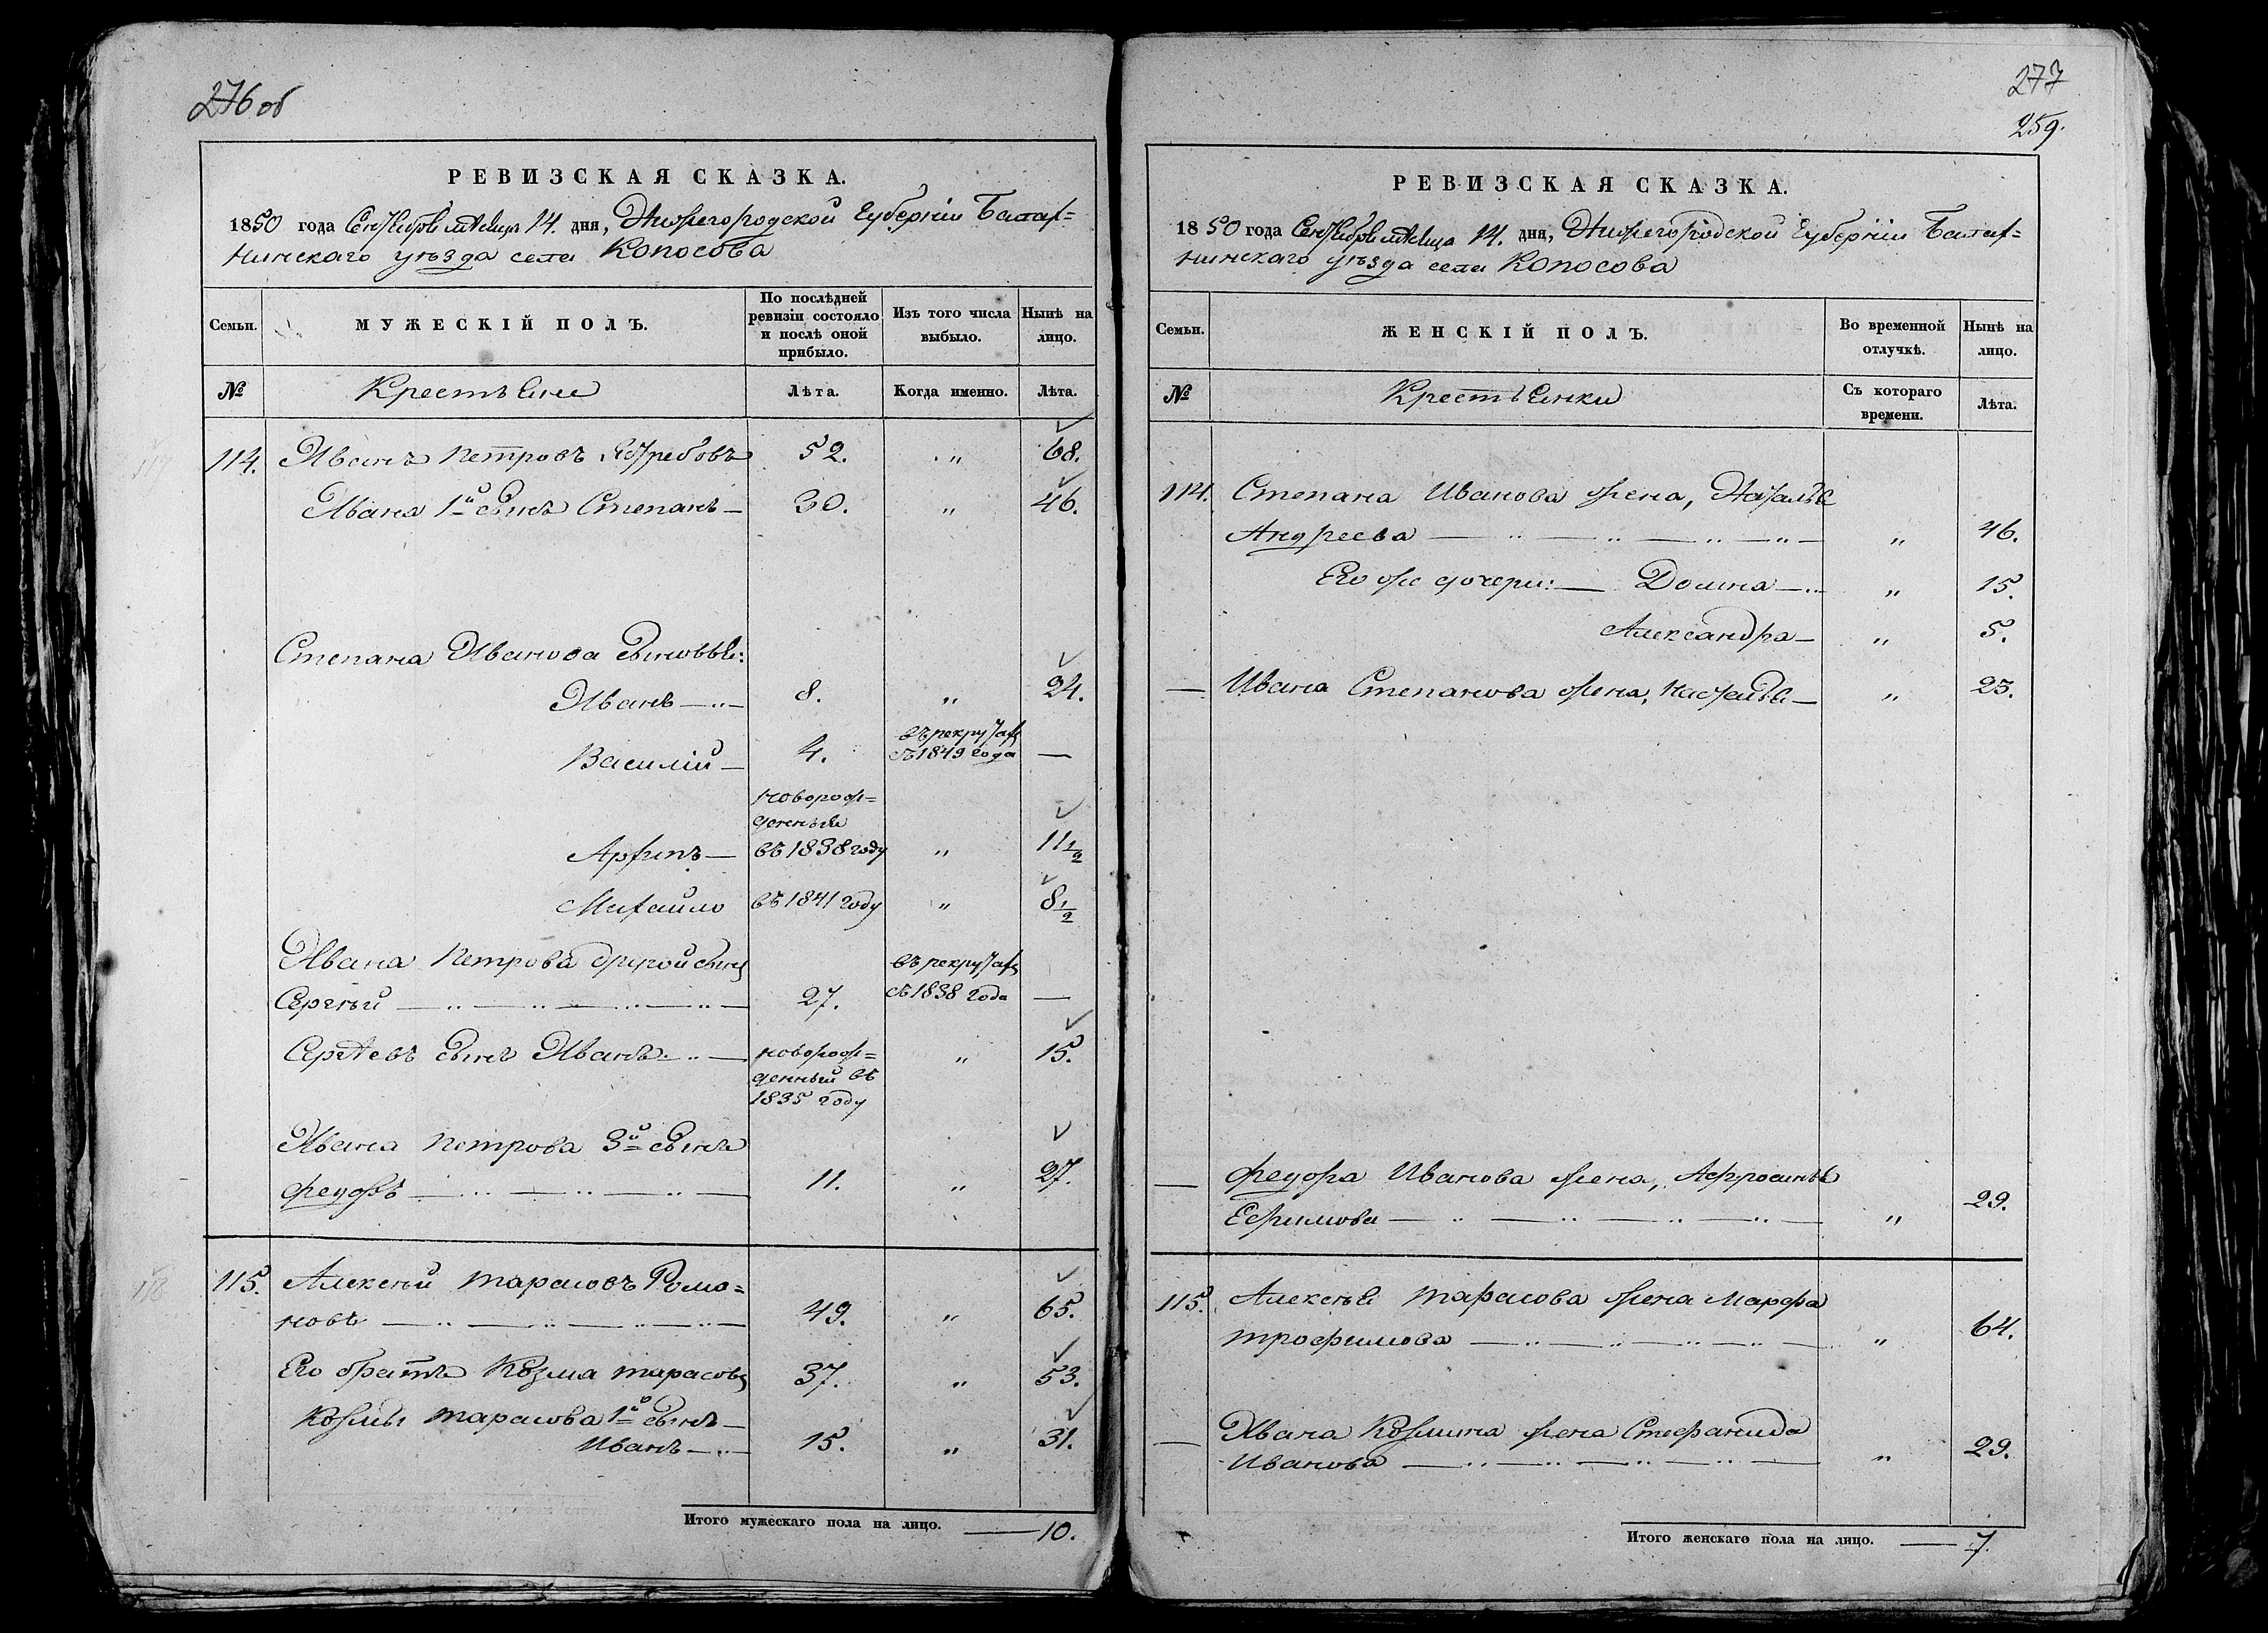 276 об
РЕВИЗСКАЯ СКАЗКА.
1850 года Сентября месяца 14. дня, Нижегородской Губерніи Балах=
нинскаго уѣзда села Копосова
Семьи.
МУЖЕСКІЙ ПОЛЪ.
По послѣдней ревизіи состояло и послѣ оной прибыло.
Изъ того числа выбыло.
Нынѣ на лицо.
№
Крестьяне
Лѣта.
Когда именно.
Лѣта.
114. Иванъ Петровъ Ястребовъ 52. „ 68.
Ивана 1й сынъ Степанъ — 30. „ 46.
Степана Иванова сыновья:
Иванъ — 8. „ 24.
Василій — 4. въ рекрутахъ съ 1849 года —
Архипъ — новорож=
денные
въ 1838 году „ 11 1/2
Михайло въ 1841 году „ 8 1/2
Ивана Петрова другой сынъ
Сергѣй — 27. въ рекрутахъ съ 1838 года —
Сергѣевъ сынъ Иванъ — новорож=
денный въ
1835 году „ 15.
Ивана Петрова 3й сынъ
Федоръ — 11. „ 27.
115. Алексѣй Тарасовъ Рома=
новъ — 49. „ 65.
Его братъ Козма Тарасовъ 37. „ 53.
Козмы Тарасова 1й сынъ —
Иванъ — 15. „ 31.
Итого мужескаго пола на лицо. — 10.
277
259.
РЕВИЗСКАЯ СКАЗКА.
1850 года Сентября месяца 14. дня, Нижегородской Губерніи Балах=
нинскаго уѣзда села Копосова
Семьи.
ЖЕНСКІЙ ПОЛЪ.
Во временной отлучкѣ.
Нынѣ на лицо.
№
Крестьянки
Съ котораго времени.
Лѣта.
114. Степана Иванова жена, Наталья
Андреева — „ 46.
Его же дочери: — Домна — „ 15.
Александра — „ 5.
— Ивана Степанова жена, Наталья — „ 23.
— Федора Иванова жена, Афросинья
Ефимова — „ 29.
115. Алексѣя Тарасова жена Марфа
Трофимова — „ 64.
— Ивана Козмина жена Стефанида
Иванова — „ 29.
Итого женскаго пола на лицо. — 7.